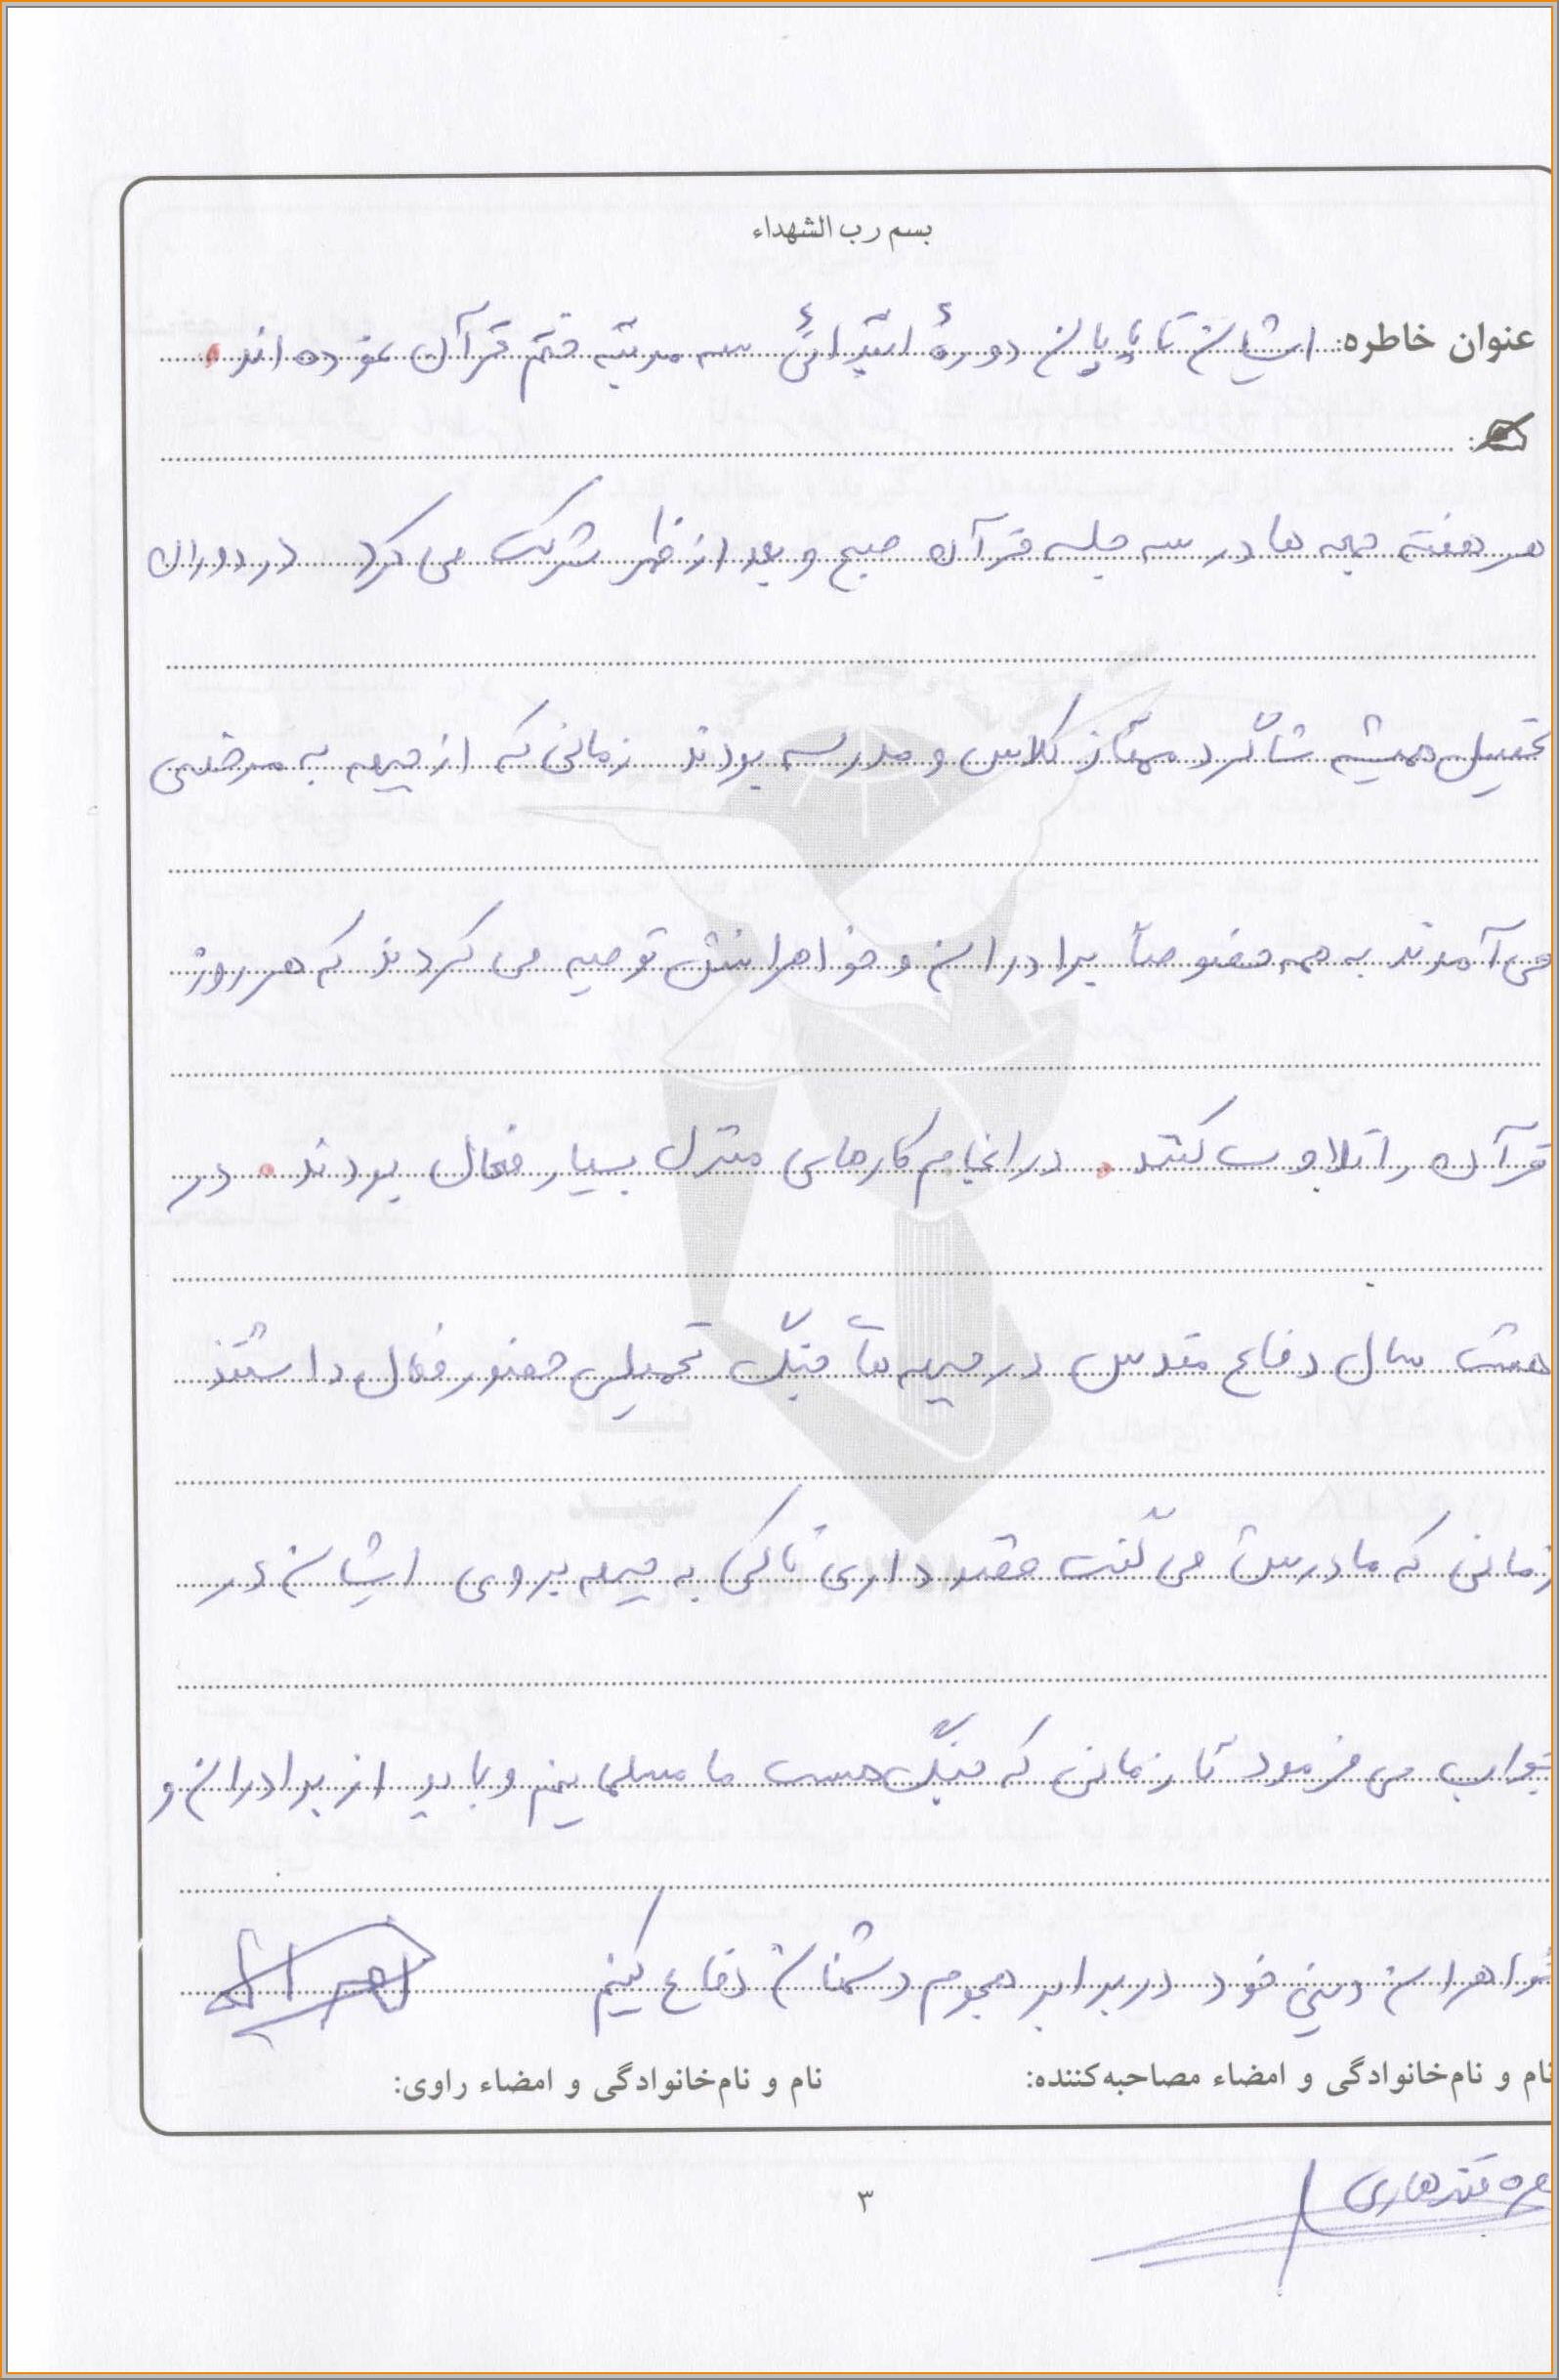 بسم رب الشهداء
عنوان خاطره: ایشان تا پایان دورهٔ ابتدائی سه مرتبه ختم قرآن نموده اند.
هر هفته جمعه ها در سه جلسه قرآن صبح و بعد از ظهر شرکت می کرد در دوران
تحصیل همیشه شاگرد ممتاز کلاس و مدرسه بودند زمانی که از جبهه به مرخصی
می آمدند به همه خصوصاً برادران و خواهرانش توصیه می کردند که هر روز
قرآن را تلاوت کنند. در انجام کارهای منزل بسیار فعال بودند. در
هشت سال دفاع مقدس در جبهه های جنگ تحمیلی حضور فعال داشتند
زمانی که مادرش می گفت قصد داری تا کی به جبهه بروی ایشان در
جواب می فرمود تا زمانی که جنگ هست ما مسلمانیم و باید از برادران و
خواهران دینی خود در برابر هجوم دشمنان دفاع کنیم
نام و نام‌خانوادگی و امضاء مصاحبه‌کننده: نام و نام‌خانوادگی و امضاء راوی:
قندهاری
۳